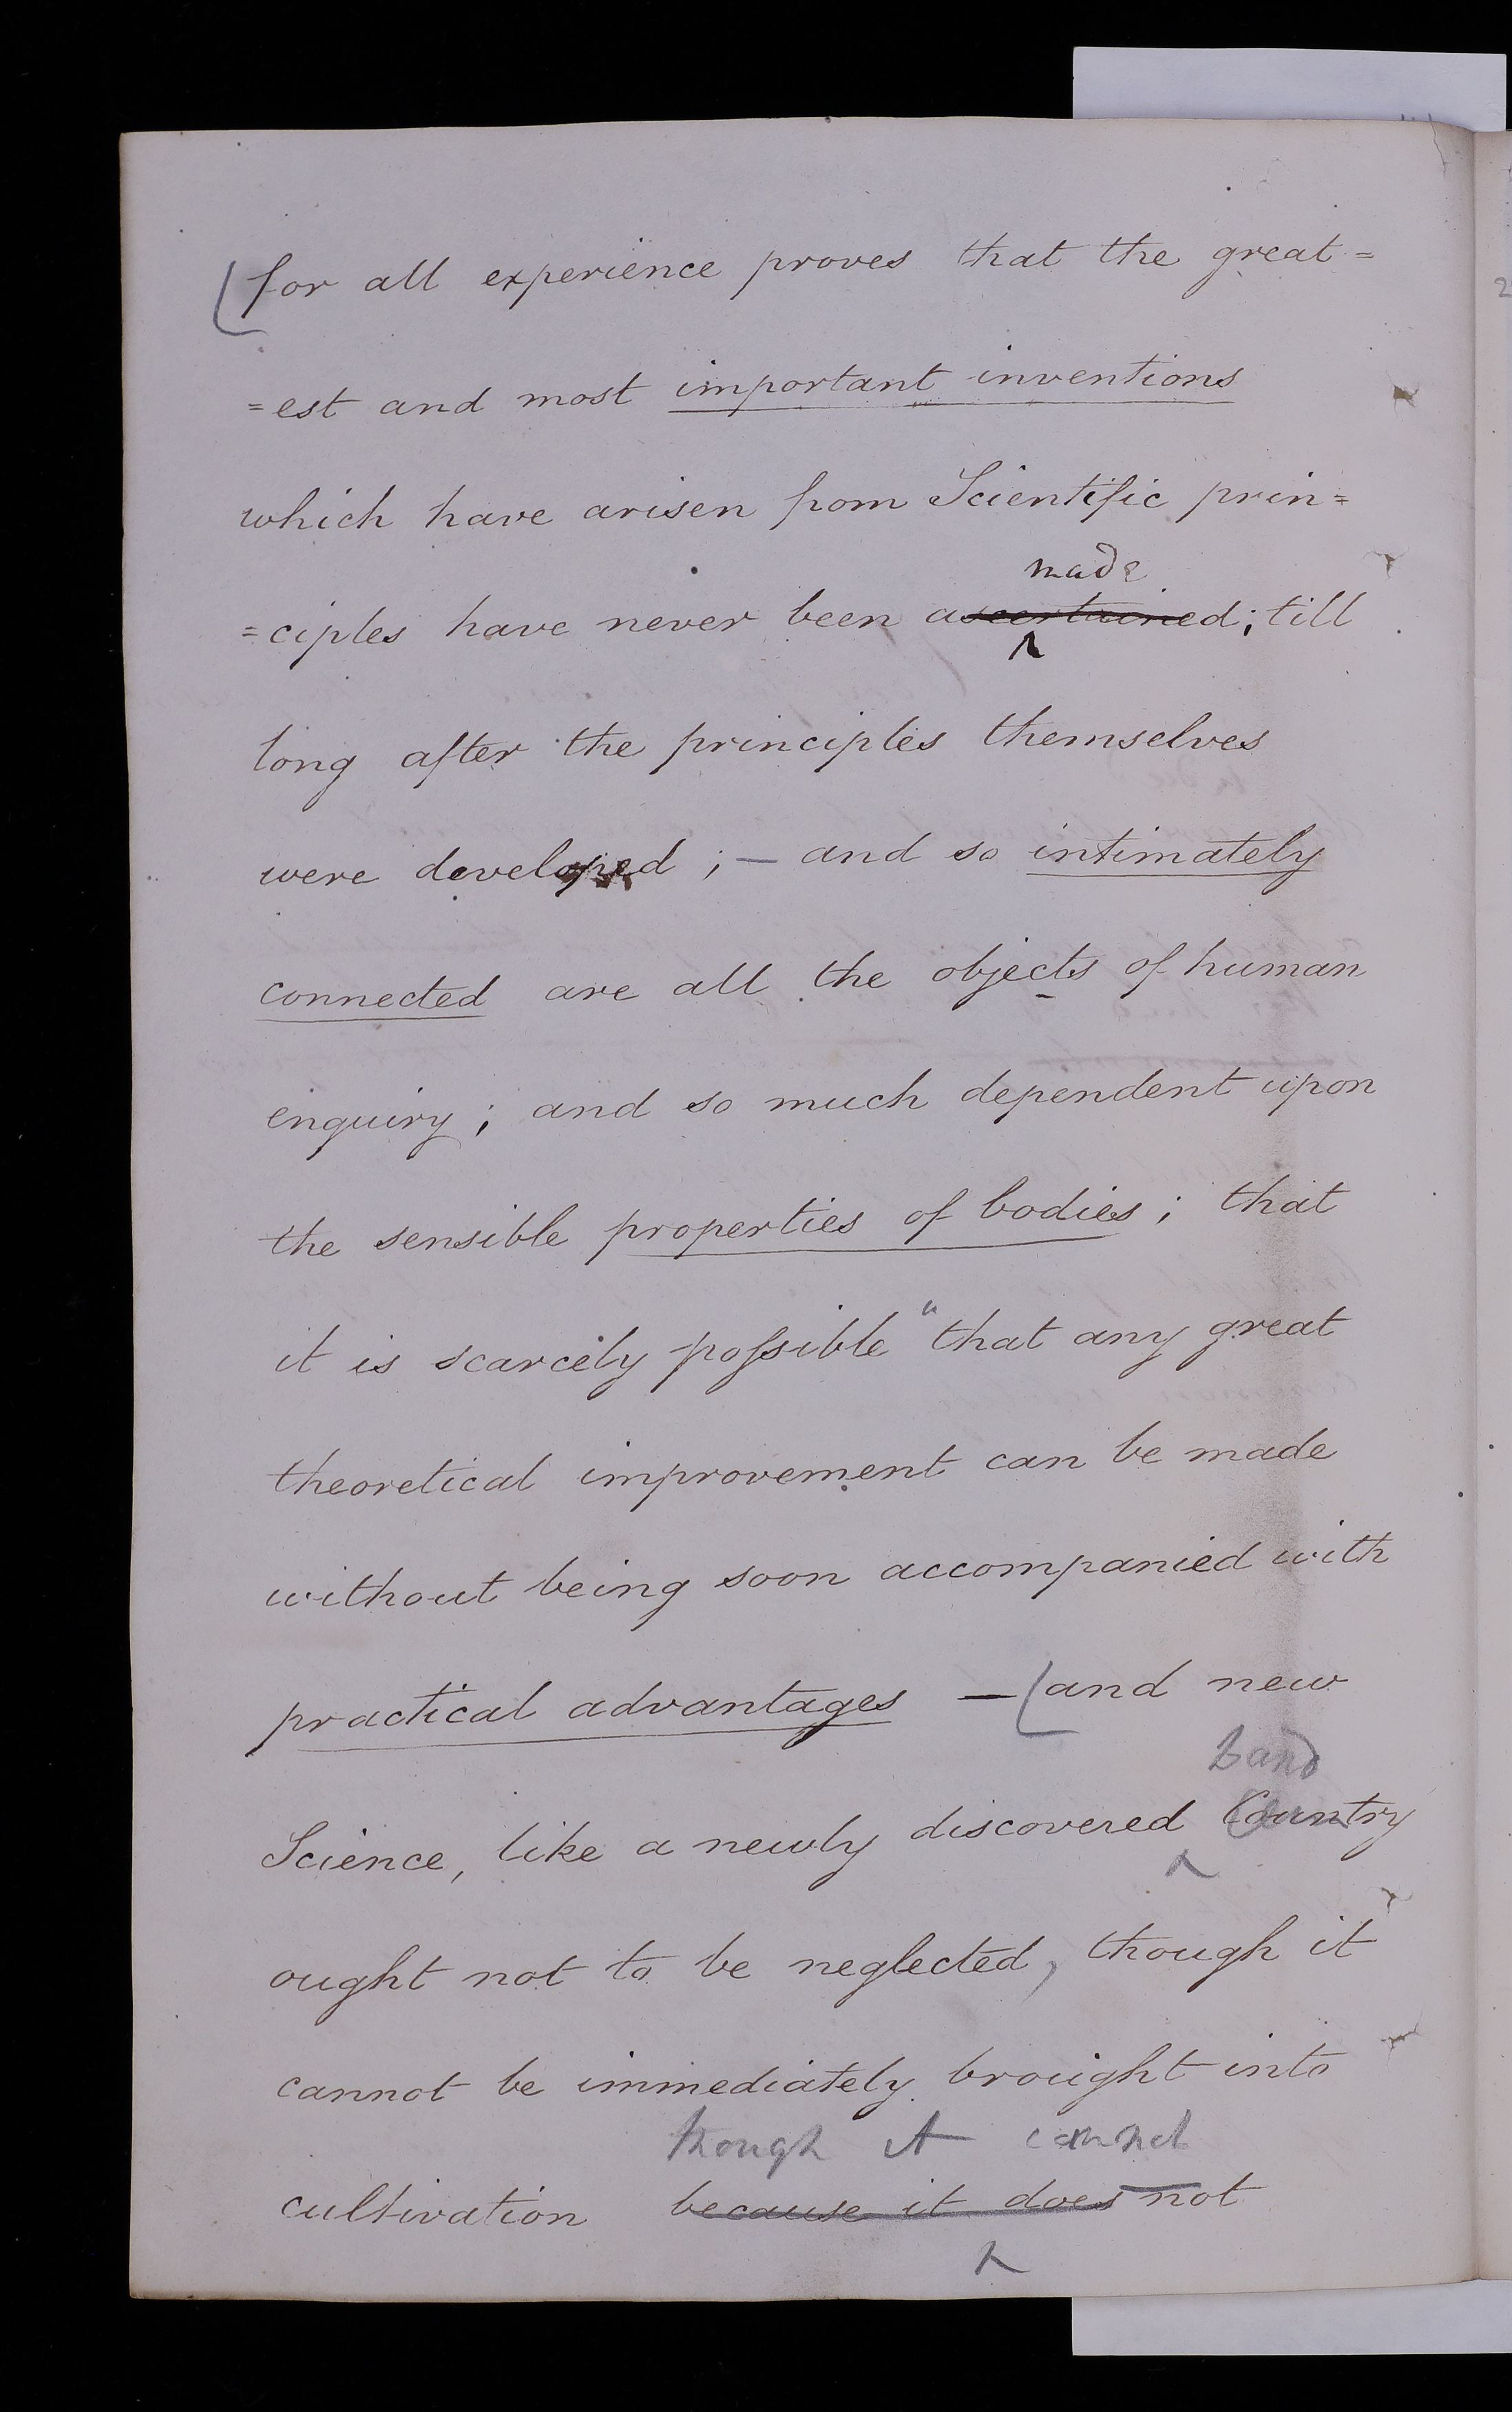 for all experience proves that the great=
=est and most important inventions
which have arisen from Scientific prin=
made
=ciples have never been ascertained; till
long after the principles themselves
were developed ; — and so intimately
connected are all the objects of human
enquiry; and so much dependent upon
the sensible properties of bodies; that
it is scarcely possible "that any great
theoretical improvement can be made
without being soon accompanied with
practical advantages — and new
Land
Science, like a newly discovered Country
ought not to be neglected, though it
cannot be immediately brought into
though it cannot
cultivation because it does not
2